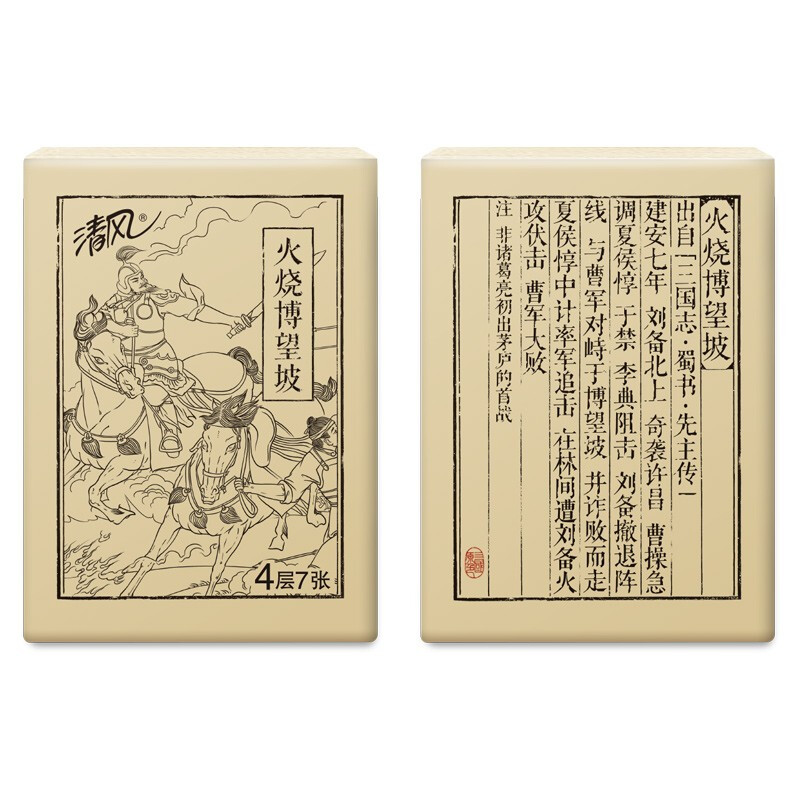 清风®
火烧博望坡
4层7张
火烧博望坡
出自「三国志·蜀书·先主传」
建安七年 刘备北上 奇袭许昌 曹操急
调夏侯惇 于禁 李典阻击 刘备撤退阵
线 与曹军对峙于博望坡 并诈败而走
夏侯惇中计率军追击 在林间遭刘备火
攻伏击 曹军大败
注 非诸葛亮初出茅庐的首战